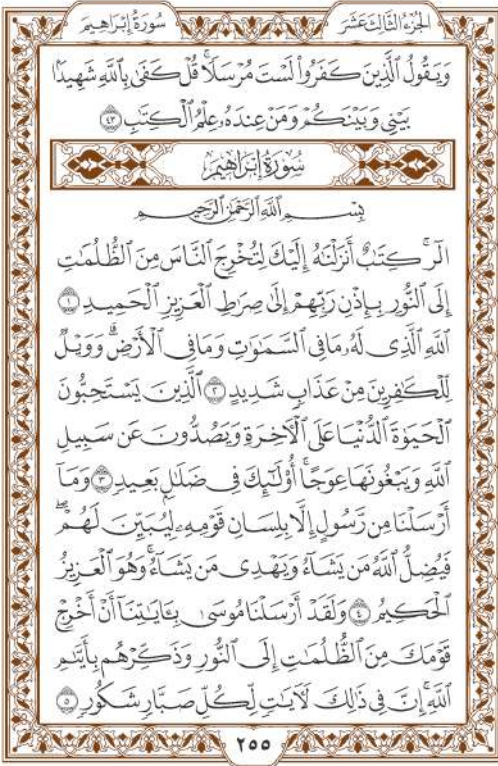 الجزء الثالث عشر
سورة إبراهيم
وَيَقُولُ ٱلَّذِينَ كَفَرُواْ لَسۡتَ مُرۡسَلٗاۚ قُلۡ كَفَىٰ بِٱللَّهِ شَهِيدَۢا
بَيۡنِي وَبَيۡنَكُمۡ وَمَنۡ عِندَهُۥ عِلۡمُ ٱلۡكِتَٰبِ ٤٣
سُورَةُ إِبۡرَاهِيمَ
بِسۡمِ ٱللَّهِ ٱلرَّحۡمَٰنِ ٱلرَّحِيمِ
الٓرۚ كِتَٰبٌ أَنزَلۡنَٰهُ إِلَيۡكَ لِتُخۡرِجَ ٱلنَّاسَ مِنَ ٱلظُّلُمَٰتِ
إِلَى ٱلنُّورِ بِإِذۡنِ رَبِّهِمۡ إِلَىٰ صِرَٰطِ ٱلۡعَزِيزِ ٱلۡحَمِيدِ ١
ٱللَّهِ ٱلَّذِي لَهُۥ مَا فِي ٱلسَّمَٰوَٰتِ وَمَا فِي ٱلۡأَرۡضِۗ وَوَيۡلٞ
لِّلۡكَٰفِرِينَ مِنۡ عَذَابٖ شَدِيدٍ ٢ ٱلَّذِينَ يَسۡتَحِبُّونَ
ٱلۡحَيَوٰةَ ٱلدُّنۡيَا عَلَى ٱلۡأٓخِرَةِ وَيَصُدُّونَ عَن سَبِيلِ
ٱللَّهِ وَيَبۡغُونَهَا عِوَجًاۚ أُوْلَٰٓئِكَ فِي ضَلَٰلِۭ بَعِيدٖ ٣ وَمَآ
أَرۡسَلۡنَا مِن رَّسُولٍ إِلَّا بِلِسَانِ قَوۡمِهِۦ لِيُبَيِّنَ لَهُمۡۖ
فَيُضِلُّ ٱللَّهُ مَن يَشَآءُ وَيَهۡدِي مَن يَشَآءُۚ وَهُوَ ٱلۡعَزِيزُ
ٱلۡحَكِيمُ ٤ وَلَقَدۡ أَرۡسَلۡنَا مُوسَىٰ بِـَٔايَٰتِنَآ أَنۡ أَخۡرِجۡ
قَوۡمَكَ مِنَ ٱلظُّلُمَٰتِ إِلَى ٱلنُّورِ وَذَكِّرۡهُم بِأَيَّىٰمِ
ٱللَّهِۚ إِنَّ فِي ذَٰلِكَ لَأٓيَٰتٖ لِّكُلِّ صَبَّارٖ شَكُورٖ ٥
٢٥٥